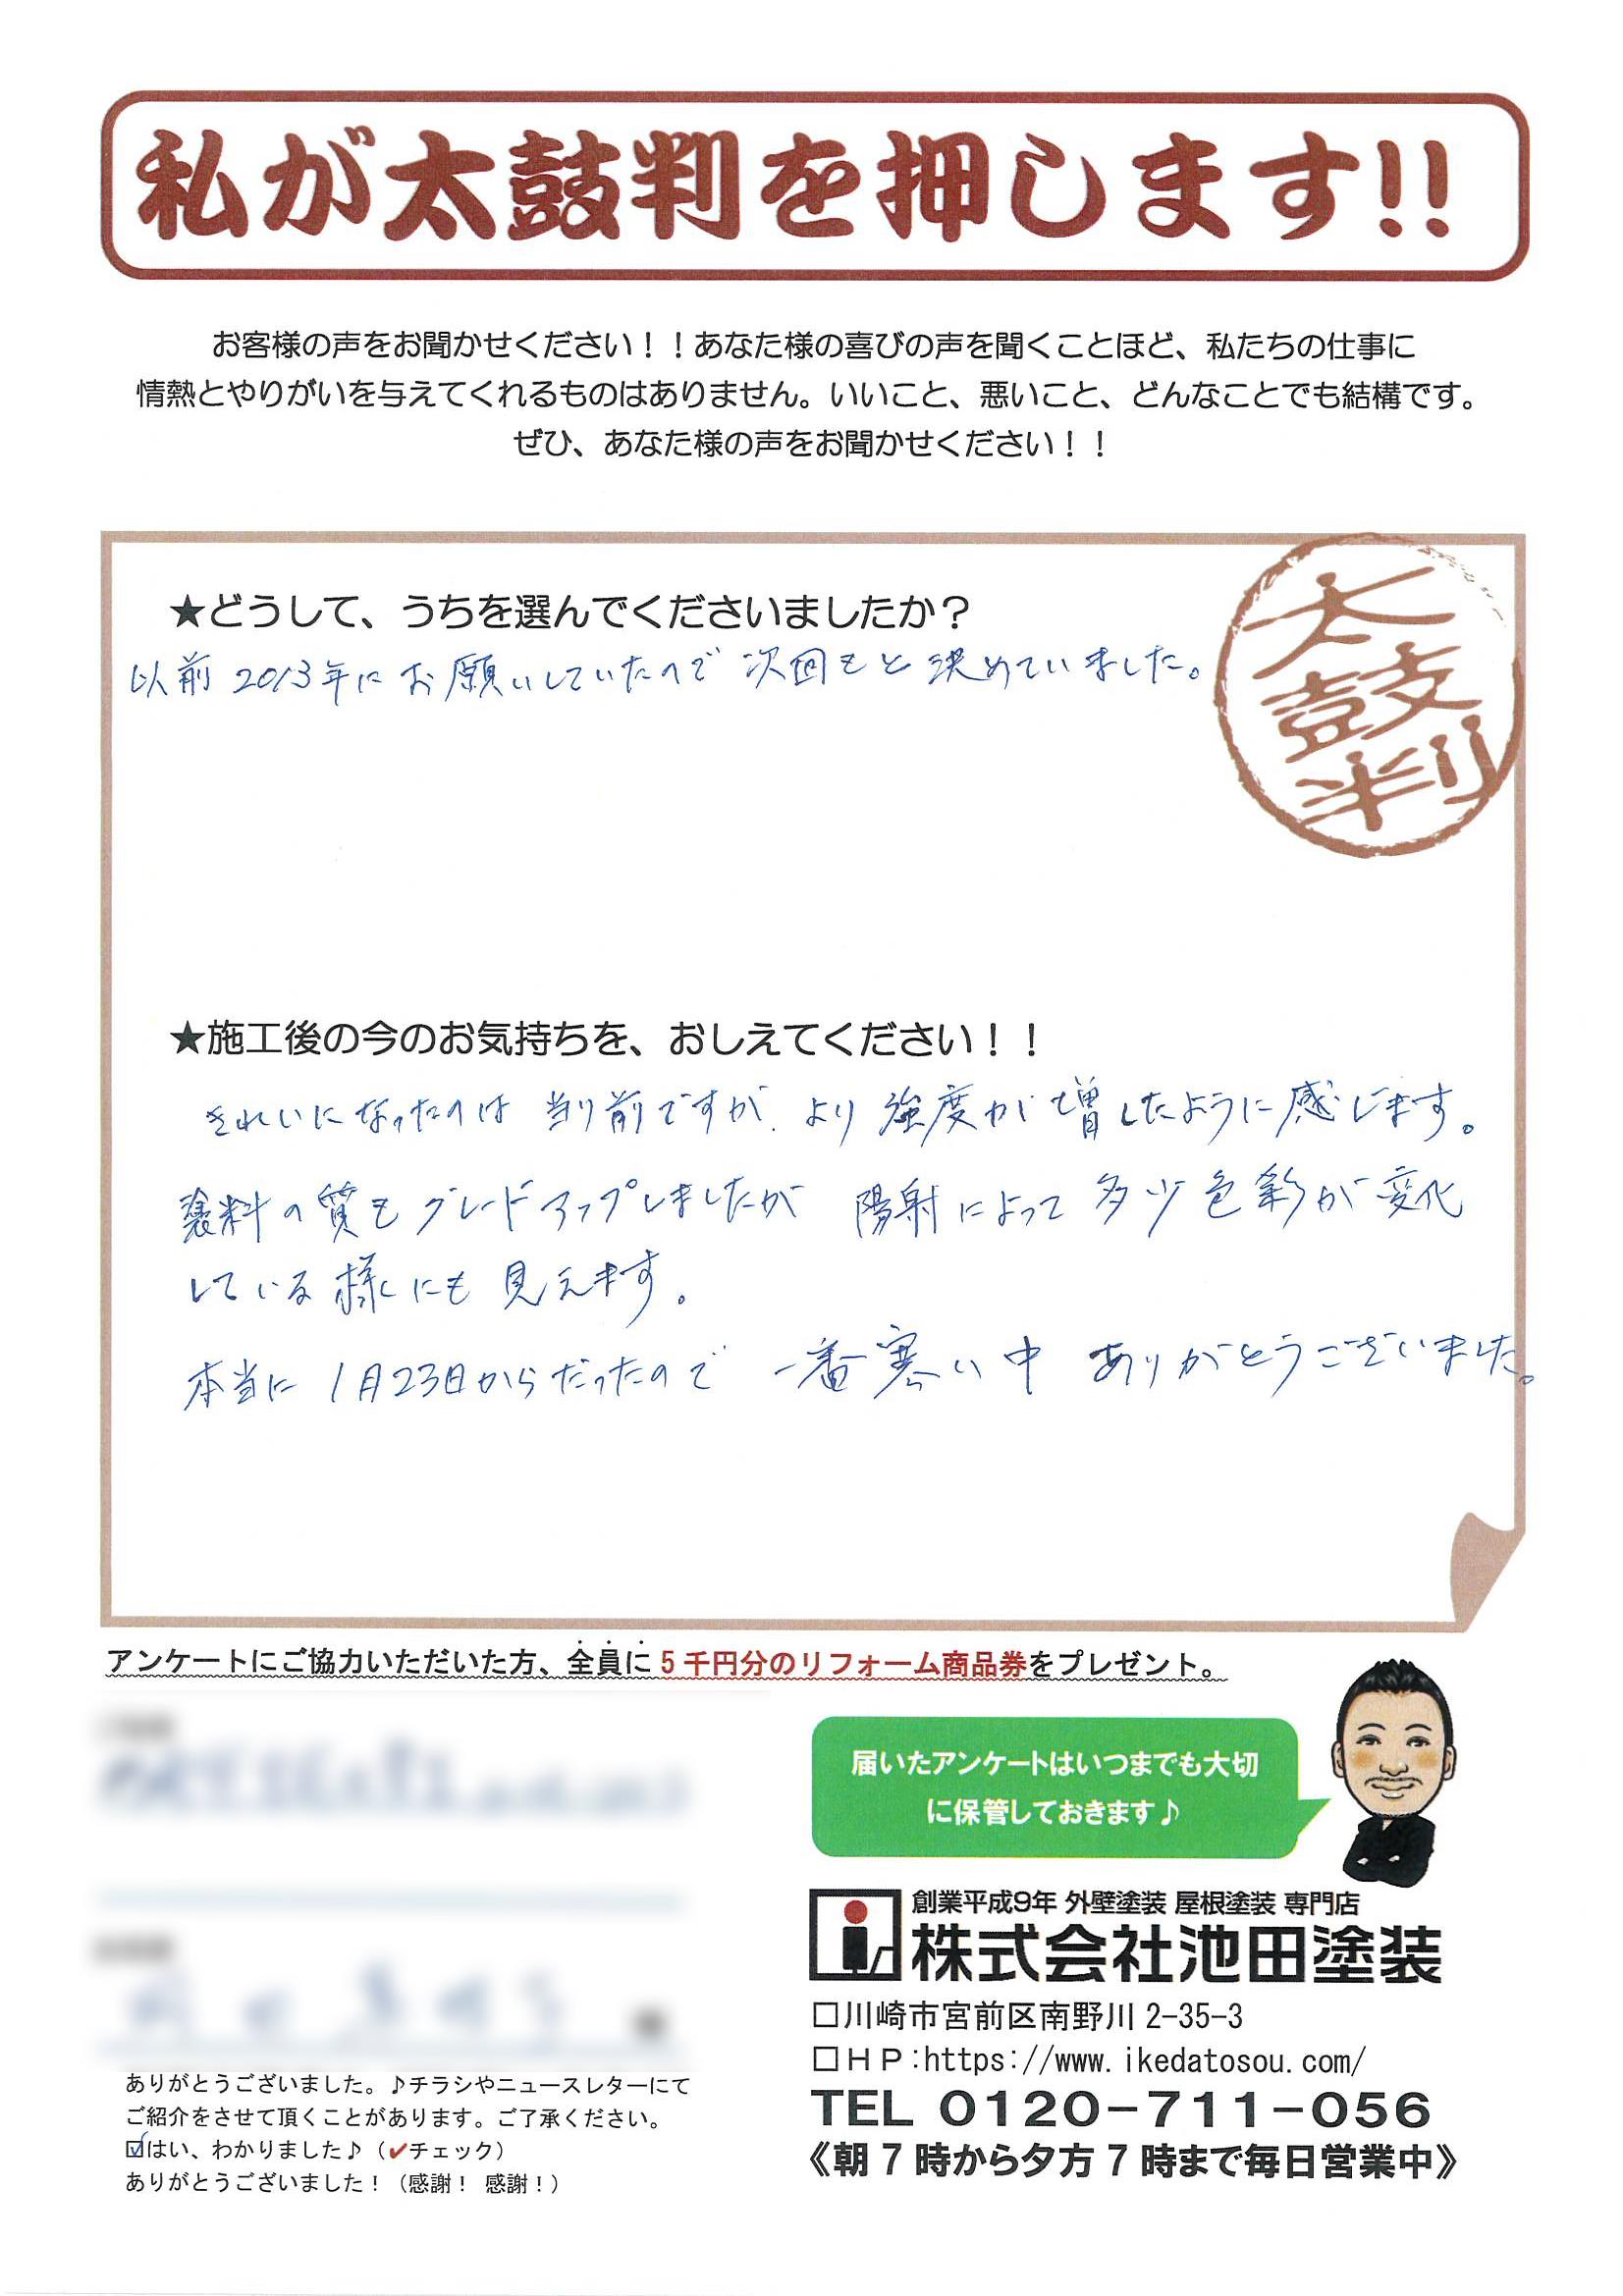 私が太鼓判を押します!!
お客様の声をお聞かせください！！あなた様の喜びの声を聞くことほど、私たちの仕事に
情熱とやりがいを与えてくれるものはありません。いいこと、悪いこと、どんなことでも結構です。
ぜひ、あなた様の声をお聞かせください！！
太鼓判
★どうして、うちを選んでくださいましたか？
以前2013年にお願いしていたので次回もと決めていました。
★施工後の今のお気持ちを、おしえてください！！
きれいになったのは当り前ですが、より強度が増したように感じます。
料の質もグレードアップしましたが 陽射によって多少色彩が変化
している様にも見えます。
本当に1月23日からだったので 一番寒い中 ありがとうございました。
アンケートにご協力いただいた方、全員に5千円分のリフォーム商品券をプレゼント。
届いたアンケートはいつまでも大切
に保管しておきます♪
創業平成9年 外壁塗装 屋根塗装 専門店
株式会社池田塗装
□川崎市宮前区南野川2-35-3
□ＨＰ:https://www.ikedatosou.com/
TEL 0120-711-056
《朝7時から夕方7時まで毎日営業中》
ありがとうございました。♪チラシやニュースレターにて
ご紹介をさせて頂くことがあります。ご了承ください。
☑はい、わかりました♪（✔チェック）
ありがとうございました！（感謝！ 感謝！）